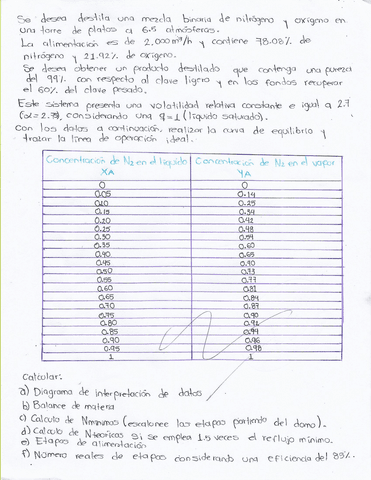 Se desea destila una mezcla binaria de nitrógeno y oxigeno en
una torre de platos a 6.5 atmósferas.
La alimentación es de 2,000 m³/h y contiene 78.08% de
nitrógeno y 21.92% de oxigeno.
Se desea obtener un producto destilado que contenga una pureza
del 99% con respecto al clave ligero y en los fondos recuperar
el 60% del clave pesado.
Este sistema presenta una volatilidad relativa constante e igual a 2.7
considerando una q=1 (líquido saturado).
Con los datos a continuación, realizar la curva de equilibrio y
trazar la línea de operación ideal.
Concentración de N₂ en el líquido Concentración de N₂ en el vapor
XA YA
0 0
0.05 0.14
0.10 0.25
0.15 0.34
0.20 0.42
0.25 0.48
0.30 0.54
0.35 0.60
0.40 0.65
0.45
0.50 0.73
0.55 0.77
0.60 0.81
0.65 0.84
0.70 0.87
0.75 0.90
0.80
0.85 0.94
0.90 0.96
0.95 0.98
1 1
Calcular:
a) Diagrama de interpretación de datos
b) Balance de materia
c) Calculo de Nmínimos (escalonee las etapas partiendo del domo).
d) Calculo de Nteóricas si se emplea 1.5 veces el reflujo mínimo.
e) Etapas de alimentación
f) Número reales de etapas considerando una eficiencia del 85%.